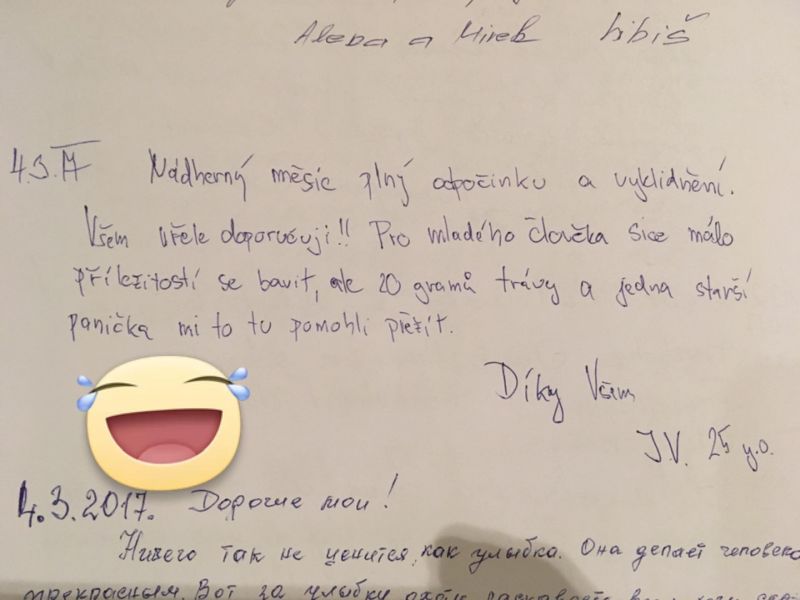 Alena a Mirek Libiš
4.3.17 Nádherný měsíc plný odpočinku a vyklidnění.
Všem vřele doporučuji!! Pro mladého člověka sice málo
příležitostí se bavit, ale 20 gramů trávy a jedna starší
panička mi to tu pomohli přežít.
Díky Všem
J.V. 25 y.o.
4.3.2017. Дорогие мои!
Ничего так не ценится, как улыбка. Она делает человека
прекрасным. Вот за улыбку